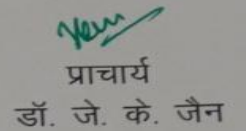 प्राचार्य
डॉ. जे. के. जैन